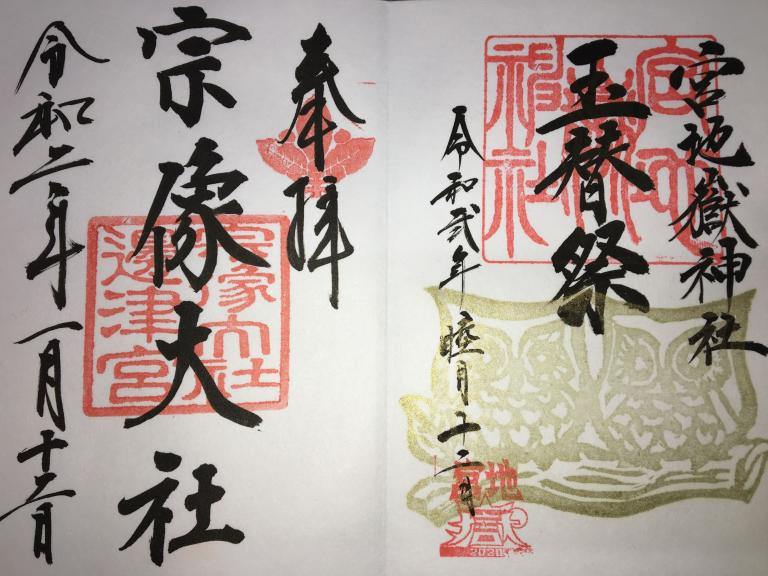 宮地嶽神社
玉替祭
令和弐年睦月十二日
宮地嶽
神社
宮地
嶽
2020
奉拝
宗像大社
令和二年一月十二日
宗像大社
邊津宮